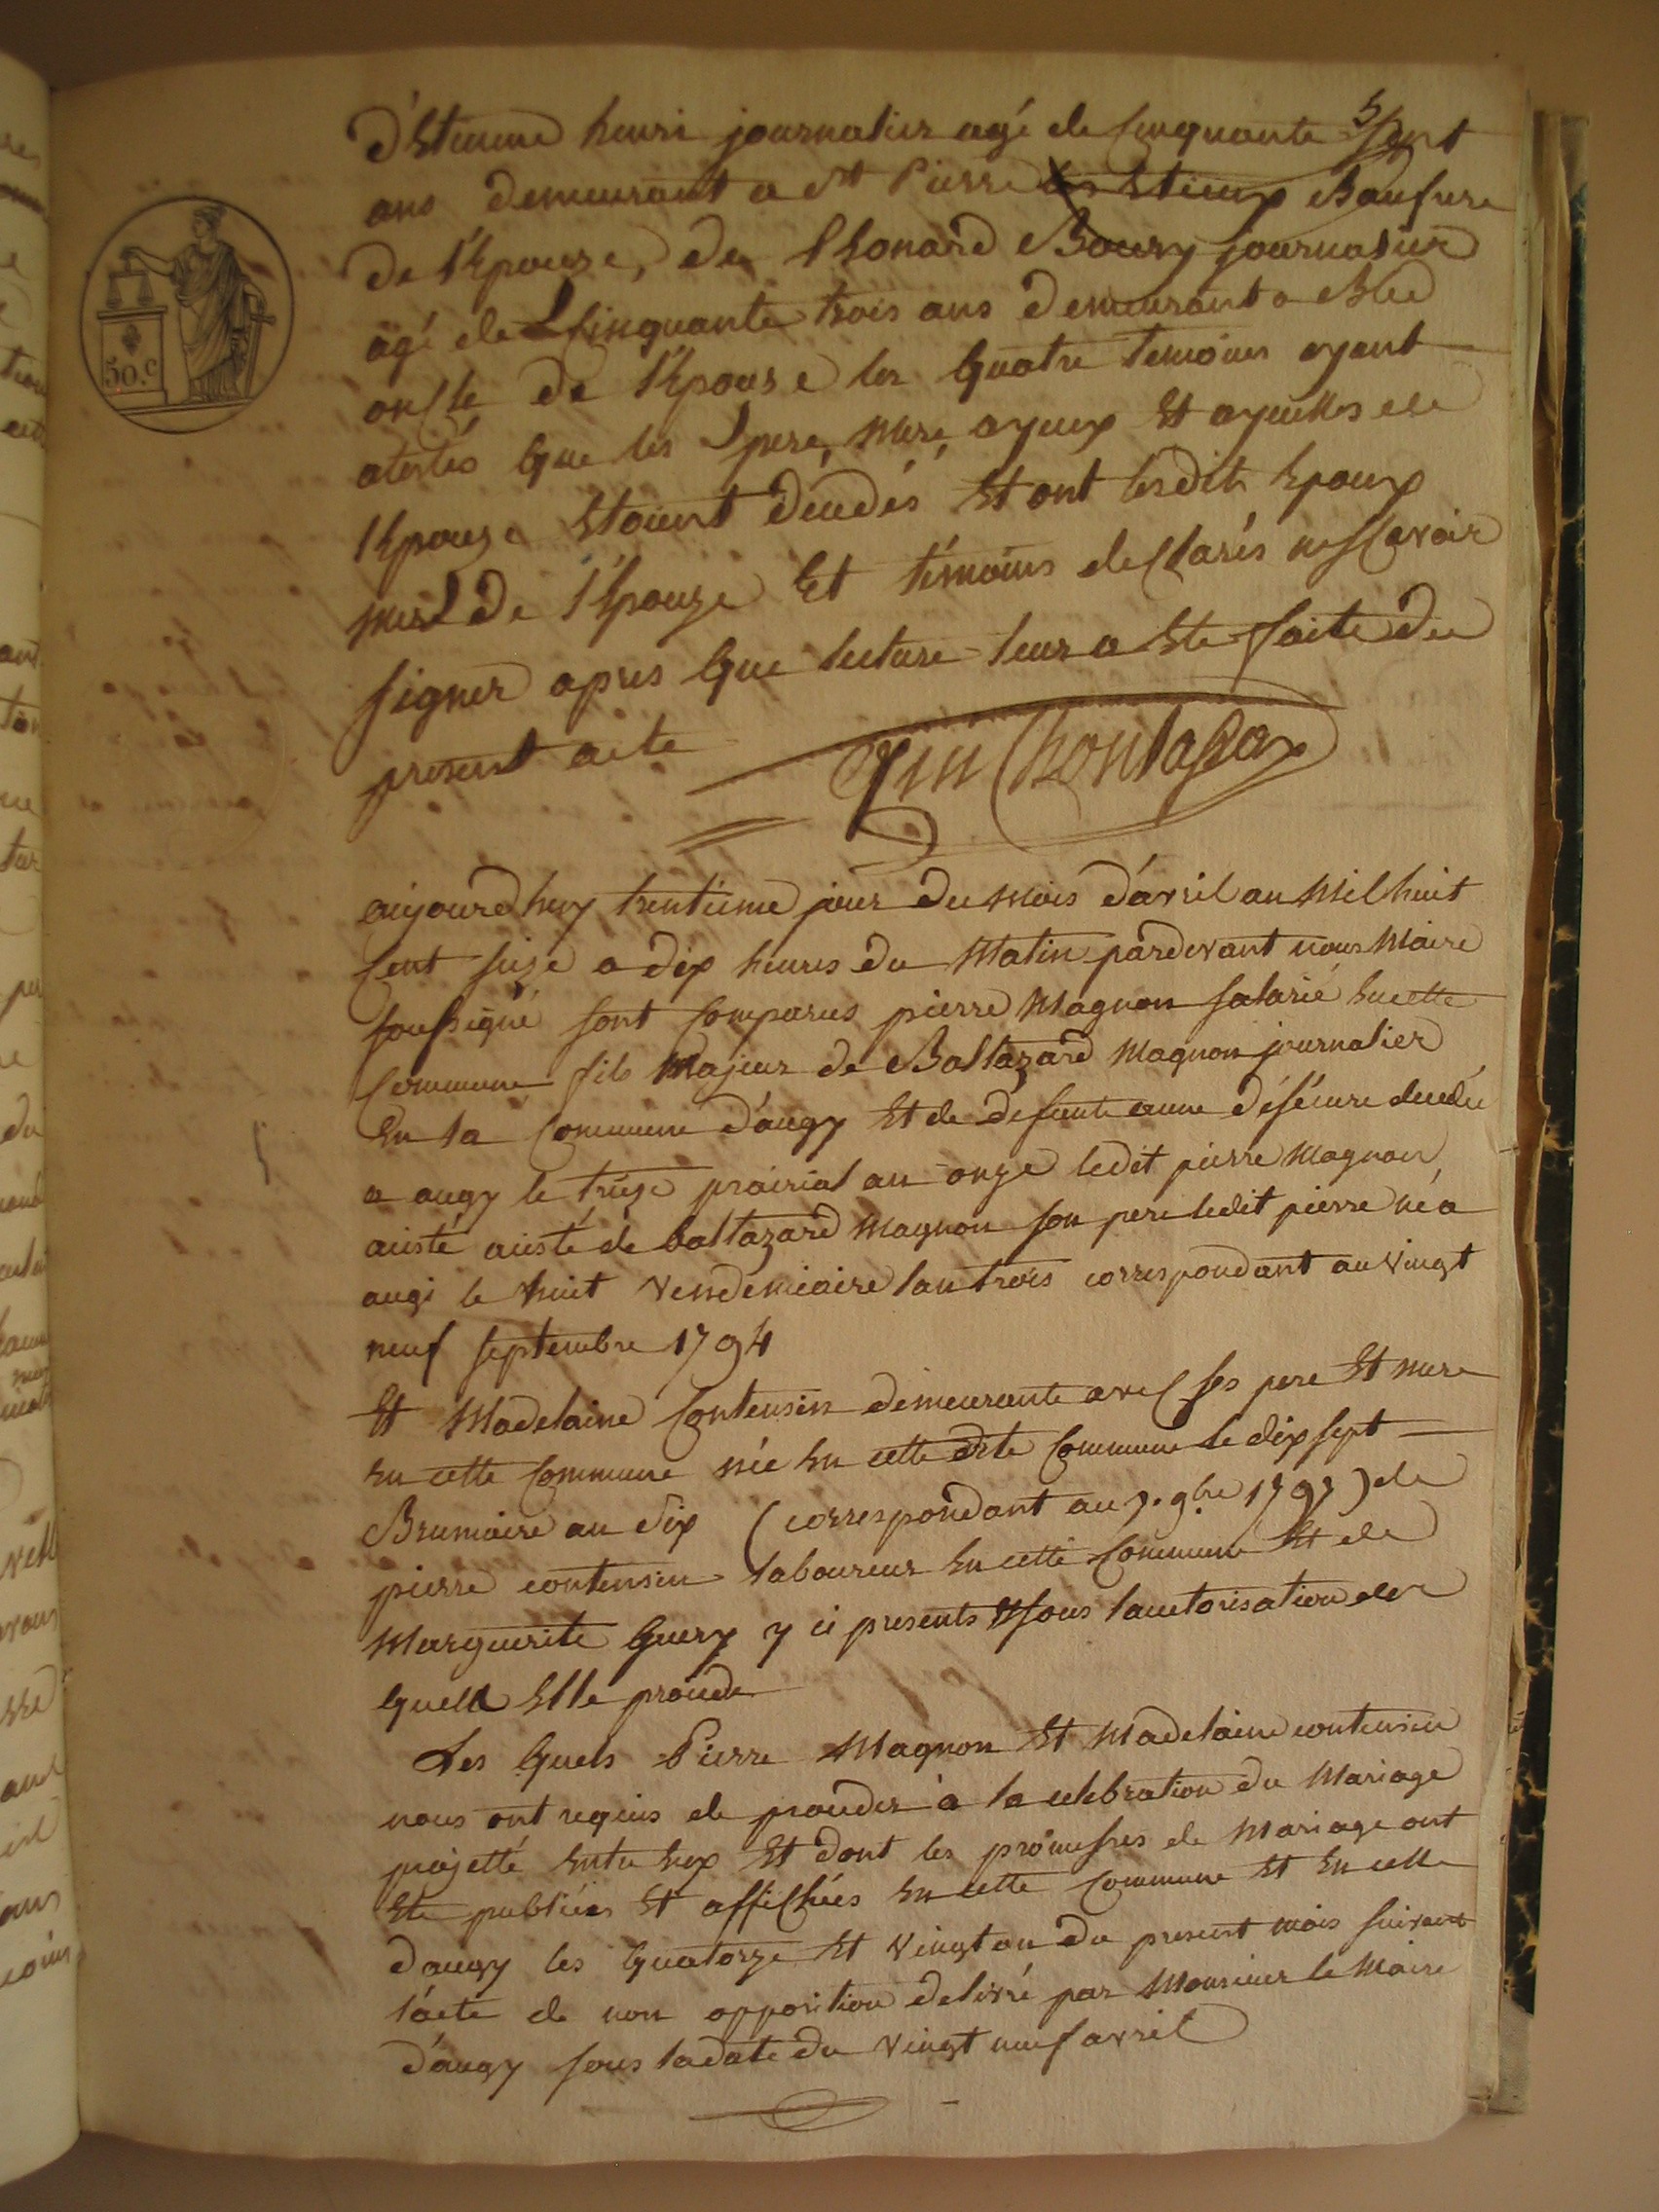 5
d'Etienne henri journalier agé de Cinquante Sept
ans demeurant a St Pierre les Etieux Baufrere
de l'Epouze, de Lhonard Boury journalier
agé de Cinquante trois ans demeurant a Bled
oncle de l'Epouse les quatre temoins ayant
50.c
atestés que les pere, mere, ayeux Et ayeulles de
l'Epouze Etoient décédés Et ont lesdits Epoux
mere de l'Epouze Et témoins declarés ne scavoir
signer apres que lecture leur a Ete faite du
present acte
aujourdhuy trentieme jour du mois d'avril an Mil huit
Cent Seize a dix heures du Matin pardevant nous Maire
soussigné sont Comparus pierre Magnon salarié En cette
Commune fils Majeur de Baltazard Magnon journalier
En la Commune d'augy Et de defunte anne décédée
a augy le treize prairial an onze ledit pierre Magnon
acisté acisté de baltazard Magnon son pere ledit pierre né a
augi le huit Vendemiaire l'an trois correspondant au vingt
neuf septembre 1794
Et Madelaine Contensin demeurante avec ses pere Et mere
En cette Commune née En cette dite Commune le dix sept
Brumaire an dix (correspondant au 7. 9bre 1797) de
pierre contensin laboureur En cette Commune Et de
Marguerite Guery y ci presents Et sous l'auctorisation des
quels Elle procede
Les quels Pierre Magnon Et Madelaine contensin
nous ont requis de proceder à la celebration du Mariage
projetté Entre Eux Et dont les promesses de Mariage ont
Ete publiées Et affichées En cette Commune Et En celle
d'augy les quatorze Et vingt un du present mois suivant
l'acte de non opposition delivré par Monsieur le Maire
d'augy sous la date du vingt neuf avril